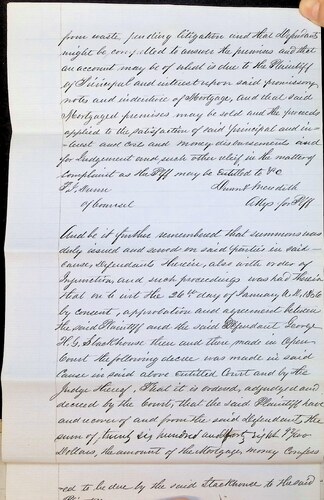 from waste pending litigation and that Defendants
might be compelled to answer the premises and that
an account may be of what is due to the Plaintiff
of Principal and interest upon said promissory
note and indenture of Mortgage, and that said
Mortgaged premises may be sold and the proceeds
applied to the satisfaction of said principal and in-
terest and cost and money disbursements and
for Judgement and such other relief in the matter of
complaint as the Plff may be Entitled to &c
P. J. Dunn & Meredith
of Counsel Attys for Plff
And be it further remembered that summons was
duly issued and served on said parties in said
cause, Defendants Herein, also with order of
Injunction and such proceedings was had therein
that on to wit the 26th day of January A.D. 1866
by consent, approbation and agreement between
the said Plaintiff and the said Defendant George
H. G. Stackhouse then and there made in Open
Court the following decree was made in said
Cause in said above Entitled Court and by the
Judge thereof, That it is ordered, adjudged and
decreed by the Court, that the said Plaintiff have
and recover of and from the said Defendants, the
sum of, twenty six hundred and forty eight /100
Dollars, the amount of the Mortgage money Confess
ed to be due by the said Stackhouse to the said